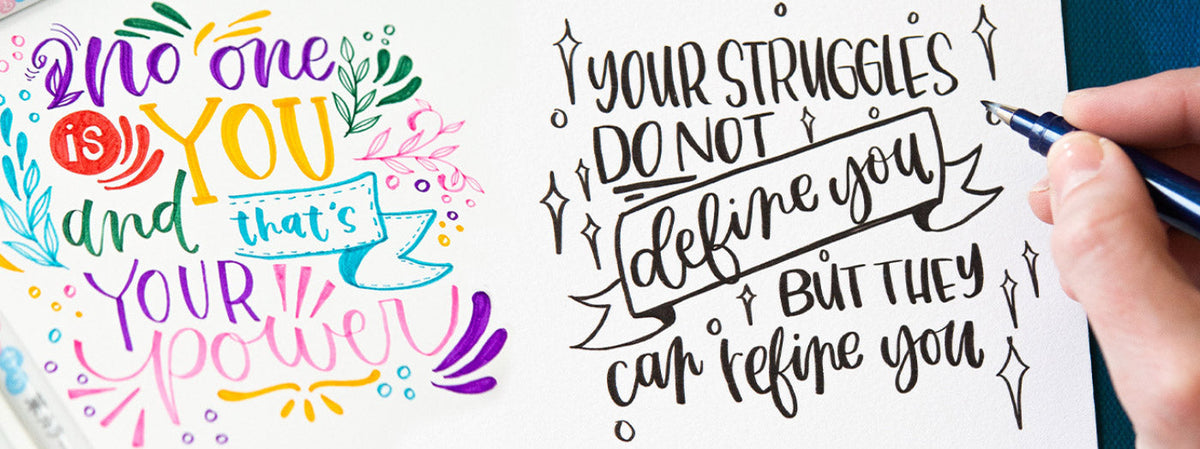 no one
is YOU
and that's
YOUR
power
YOUR STRUGGLES
DO NOT
define you
BUT THEY
can refine you